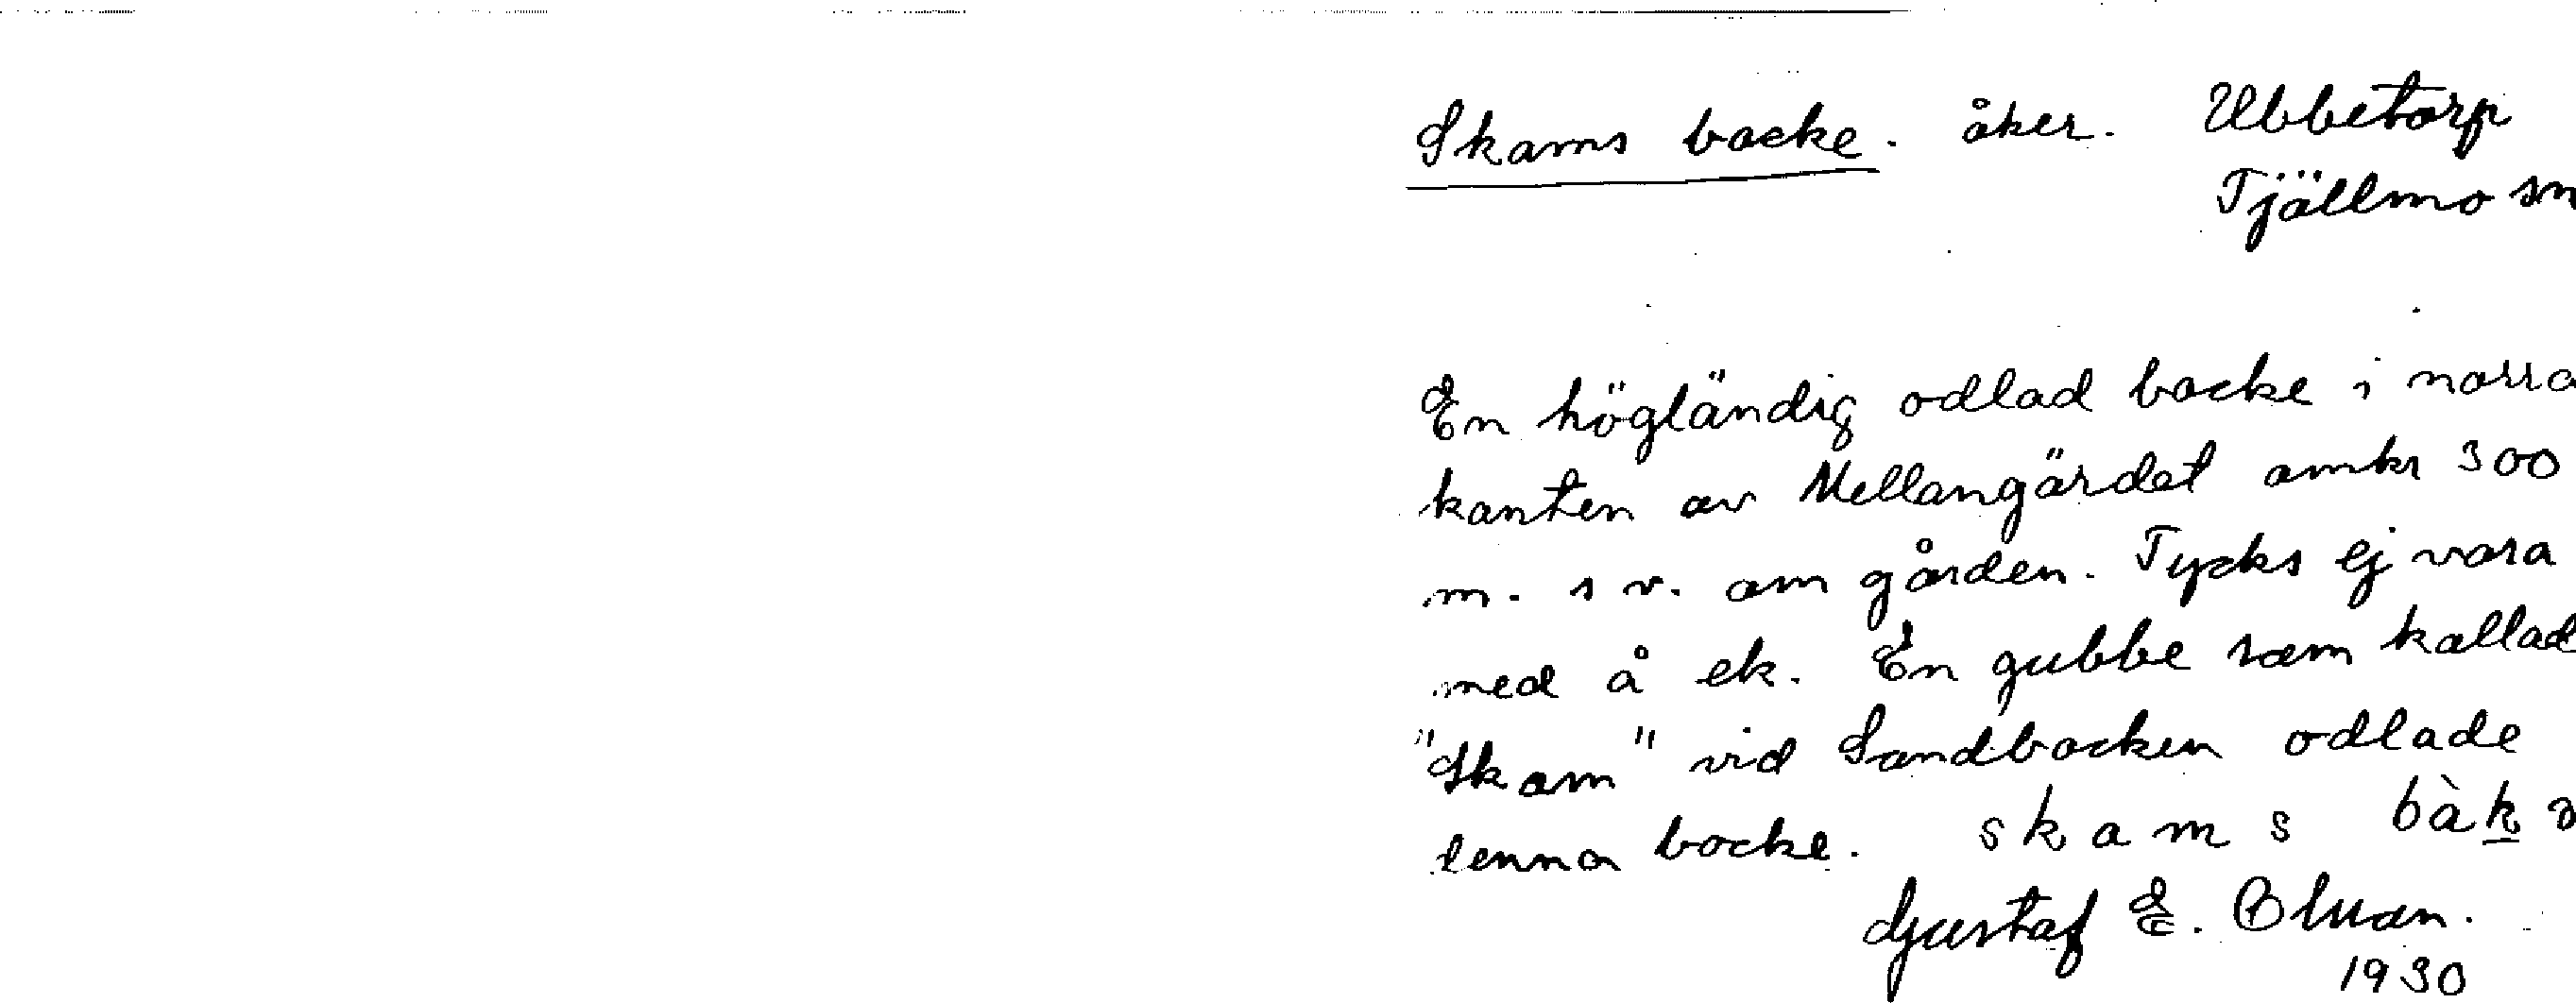 Skams backe. åker. Ubbetorp
Tjällmo sn
En högländig odlad backe i norra
kanten av Mellangärdet omkr 300
m. s v. om gården. Tycks ej vara
med å ek. En gubbe som kallad
"Skam" vid Sandbacken odlade
denna backe. skams bàk
Gustaf E. 
1930